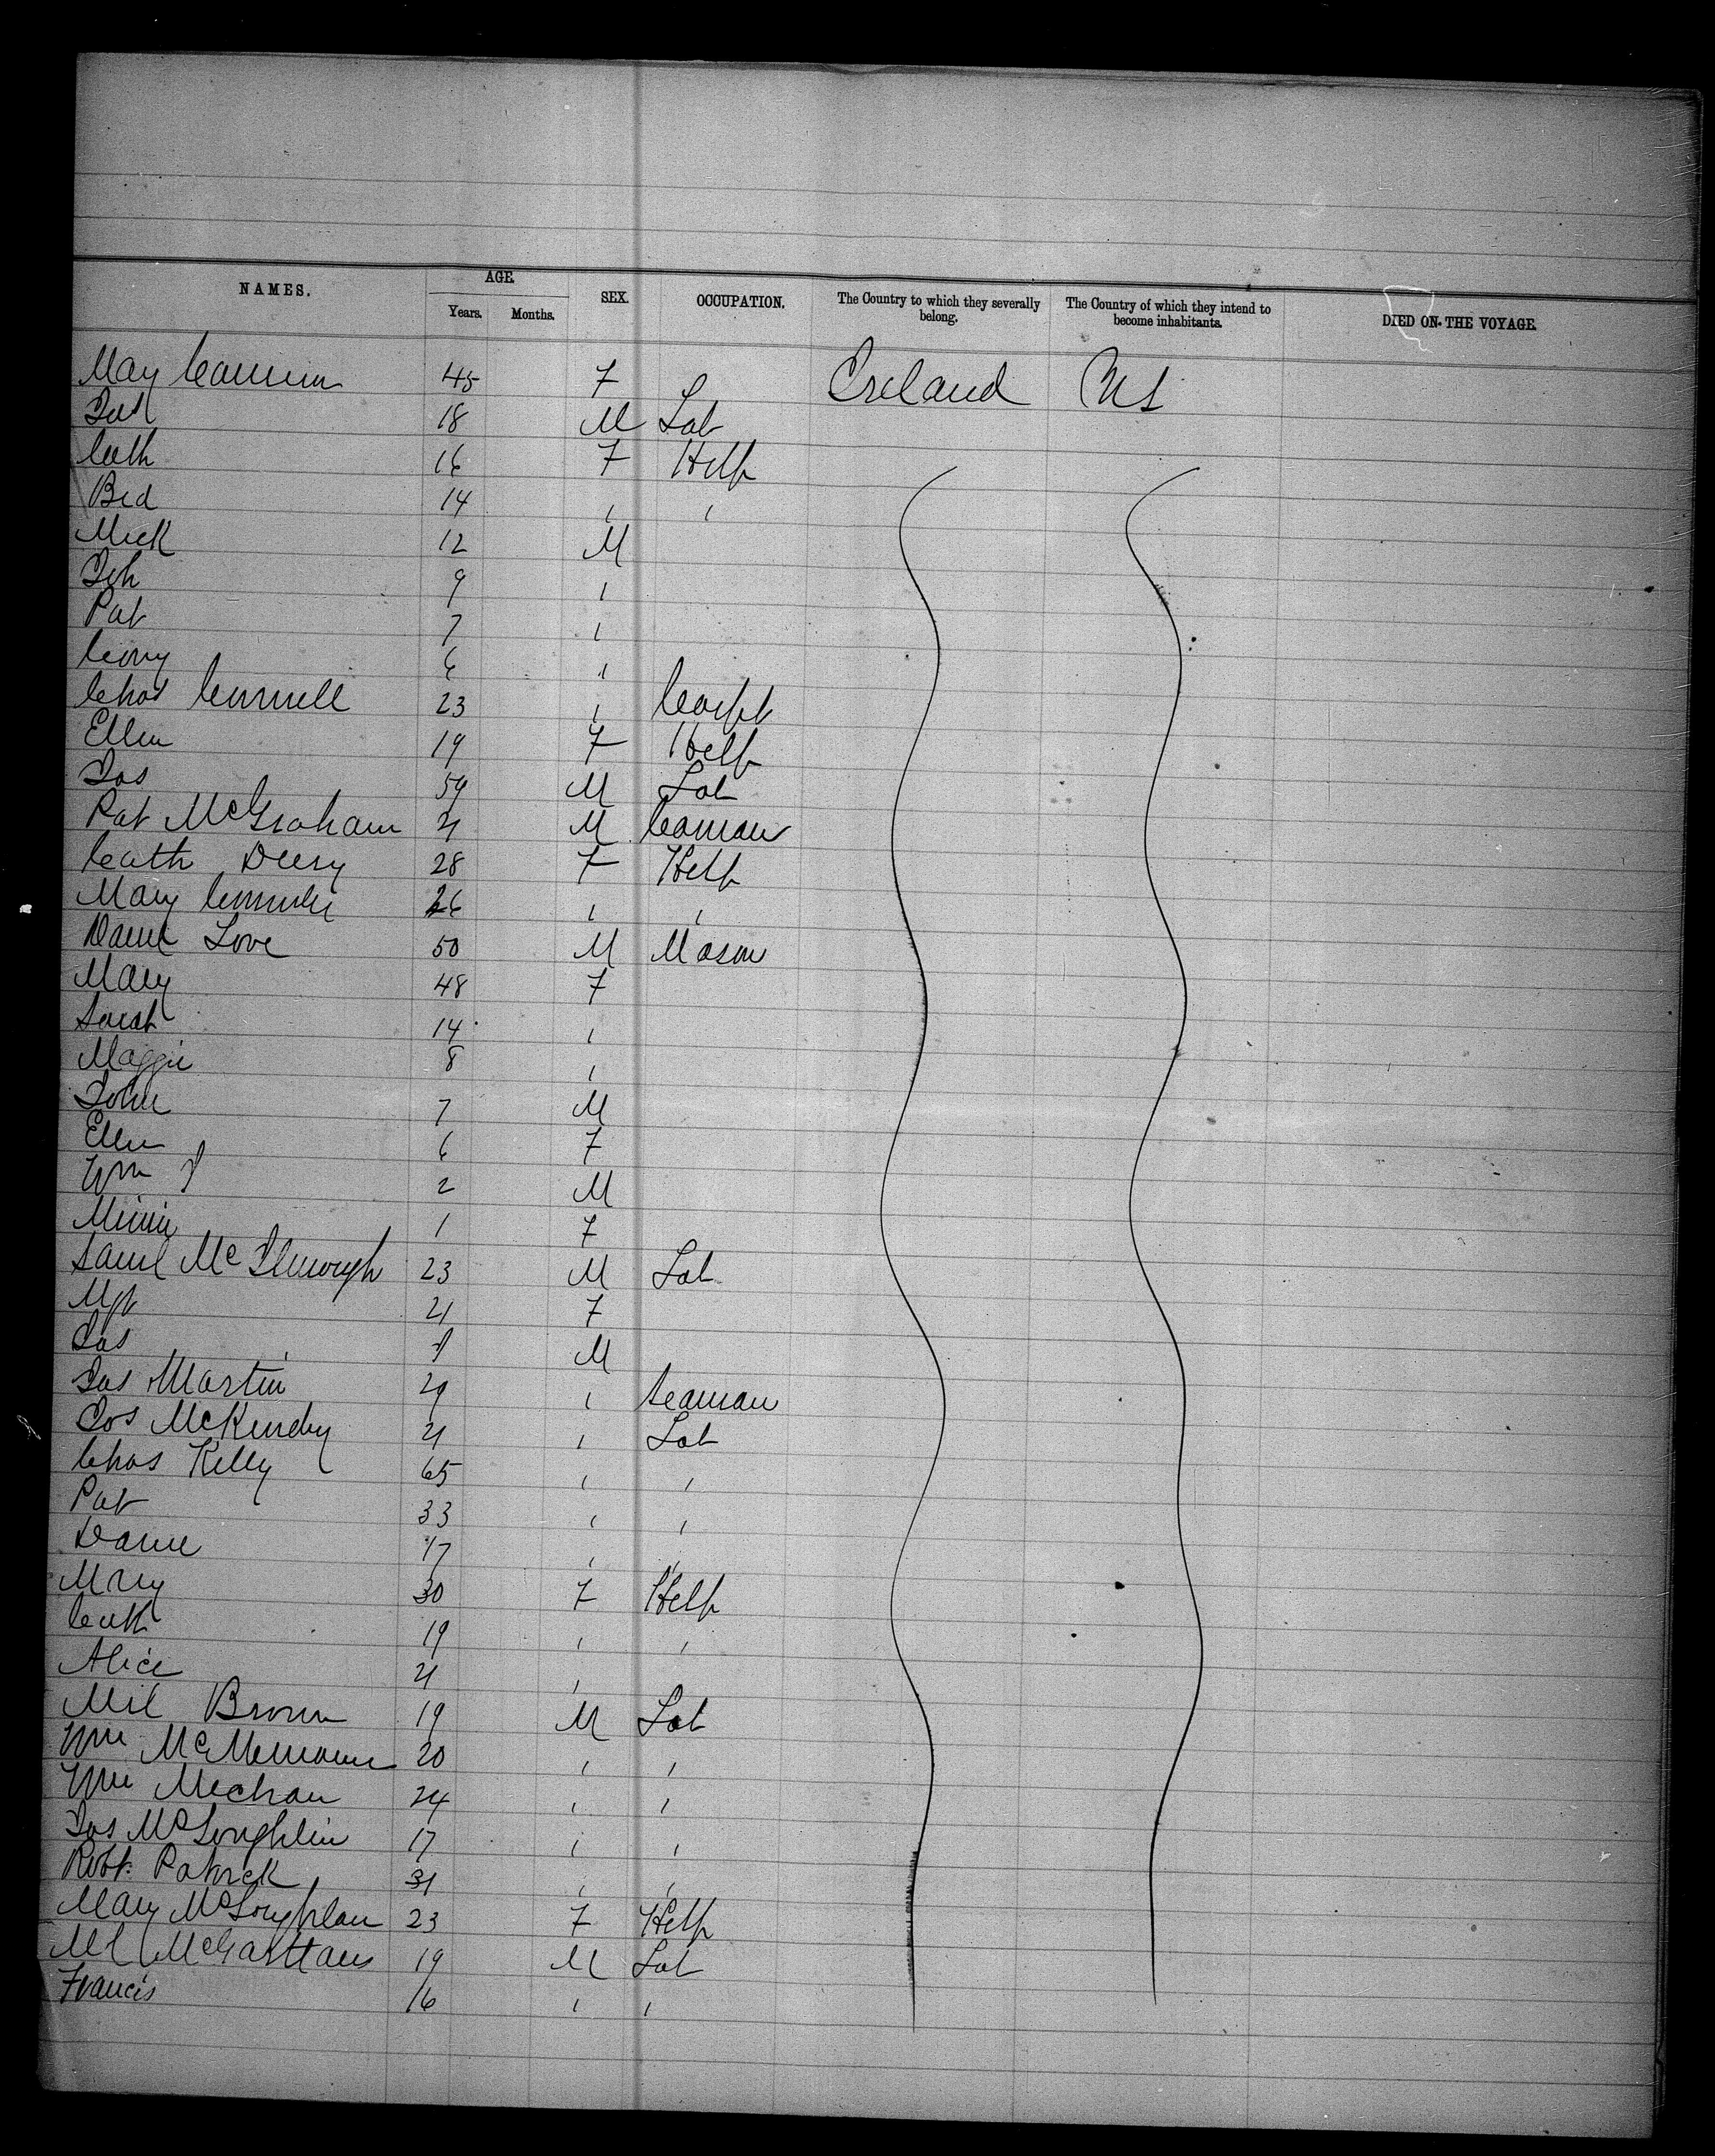 NAMES. AGE. SEX. OCCUPATION. The Country to which they severally belong. The Country of which they intend to become inhabitants. DIED ON THE VOYAGE.
Years. Months.
Mary 45 F Ireland US
Jas 18 M Lab
Cath 16 F Help
Bid 14 " "
Mick 12 M
Joh 9 "
Pat 7 "
6 "
Chas 23 " Carpt
Ellen 19 F Help
Jas 59 M Lab
Pat McGraham 21 M
Cath Deery 28 F Help
Mary 26 " "
Daniel Love 50 M Mason
Mary 48 F
Sarah 14 "
Maggie 8 "
John 7 M
Ellen 6 F
Wm J 2 M
Minnie 1 F
Saml 23 M Lab
Mgt 21 F
Jas M
Jas Martin 29 " Seaman
Jos McKendry 21 " Lab
Chas Kelly 65 " "
Pat 33 " "
Daniel 17 " "
Mary 30 F Help
Cath 19 " "
Alice 21 "
Mil Brown 19 M Lab
Wm McMenamin 20 " "
Wm Mechan 24 " "
Jas McLoughlin 17 " "
Robt. Patrick 31 " "
Mary McLoughlan 23 F Help
Ml 19 M Lab
Francis 16 " "